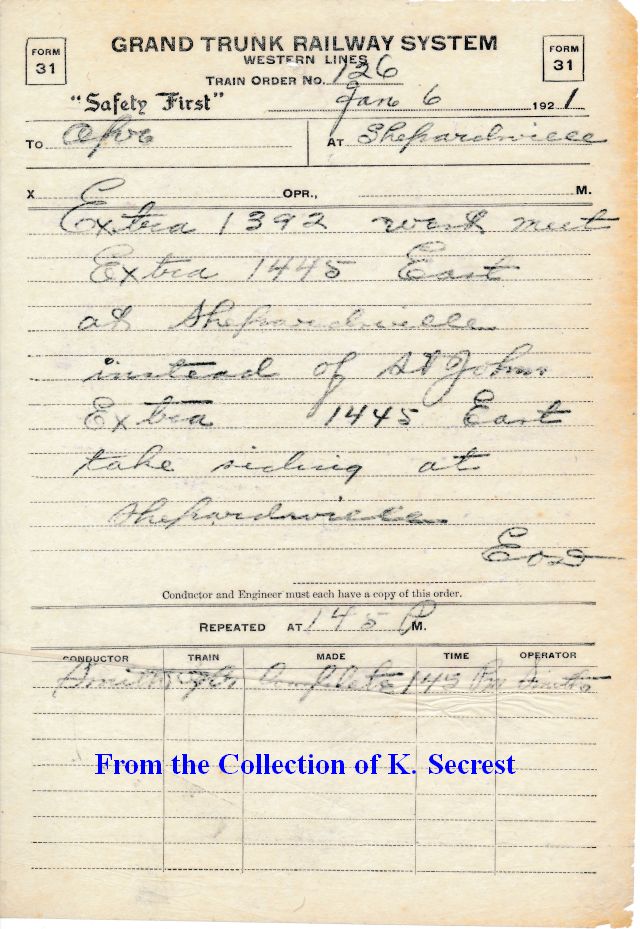 FORM 31
GRAND TRUNK RAILWAY SYSTEM
FORM 31
WESTERN LINES
TRAIN ORDER No. 126
"Safety First"
Jan 6 1921
To Opr AT Shepardville
X OPR., M.
Extra 1392 work meet
Extra 1445 East
at Shepardville
instead of St Johns
Extra 1445 East
take siding at
Shepardville
EOD
Conductor and Engineer must each have a copy of this order.
REPEATED AT 145 P M.
CONDUCTOR TRAIN MADE TIME OPERATOR
Smith Complete 145 PM Smith
From the Collection of K. Secrest